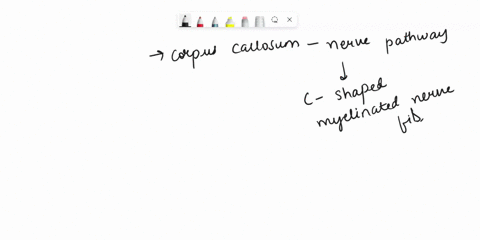 → corpus callosum – nerve pathway
↓
C- shaped
myelinated nerve
fib